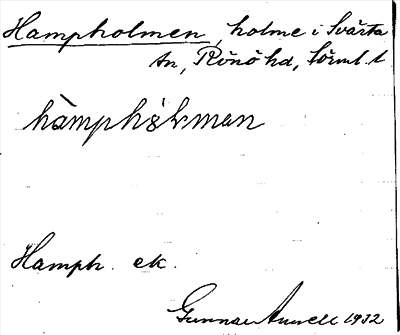 Hampholmen, holme i Svärta
ån, Rönö hd, Sörml. l
hàmphål̀man
Hamph. ek.
Gunnar Amnell 1932